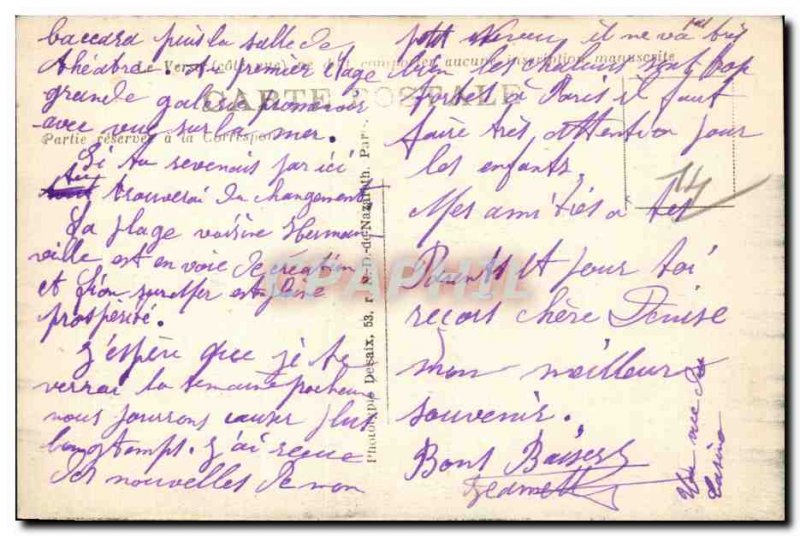 baccara puis la salle de
théâtre. Au premier étage
grande galerie promenoir
avec vue sur la mer.
Si tu revenais par ici
tu trouverai du changement
La plage voisine Herman
ville est en voie de création
et Lion sur Mer est pleine
prospérité.
J'espère que je te
verrai la semaine prochaine
nous pourrons causer plus
longtemps. J'ai reçue
des nouvelles de mon
petit neveu, il ne va
bien les chaleurs sont trop
fortes à Paris il faut
faire très attention pour
les enfants.
Mes amitiés a tes
Parents et pour toi
reçois chère Denise
mon meilleur
souvenir.
Bons Baisers
CARTE POSTALE
Partie réservée à la Correspon
Phototypie Desaix, 53, r. N.-D.-de-Nazareth, Par
CPAPHIL
14
Casino